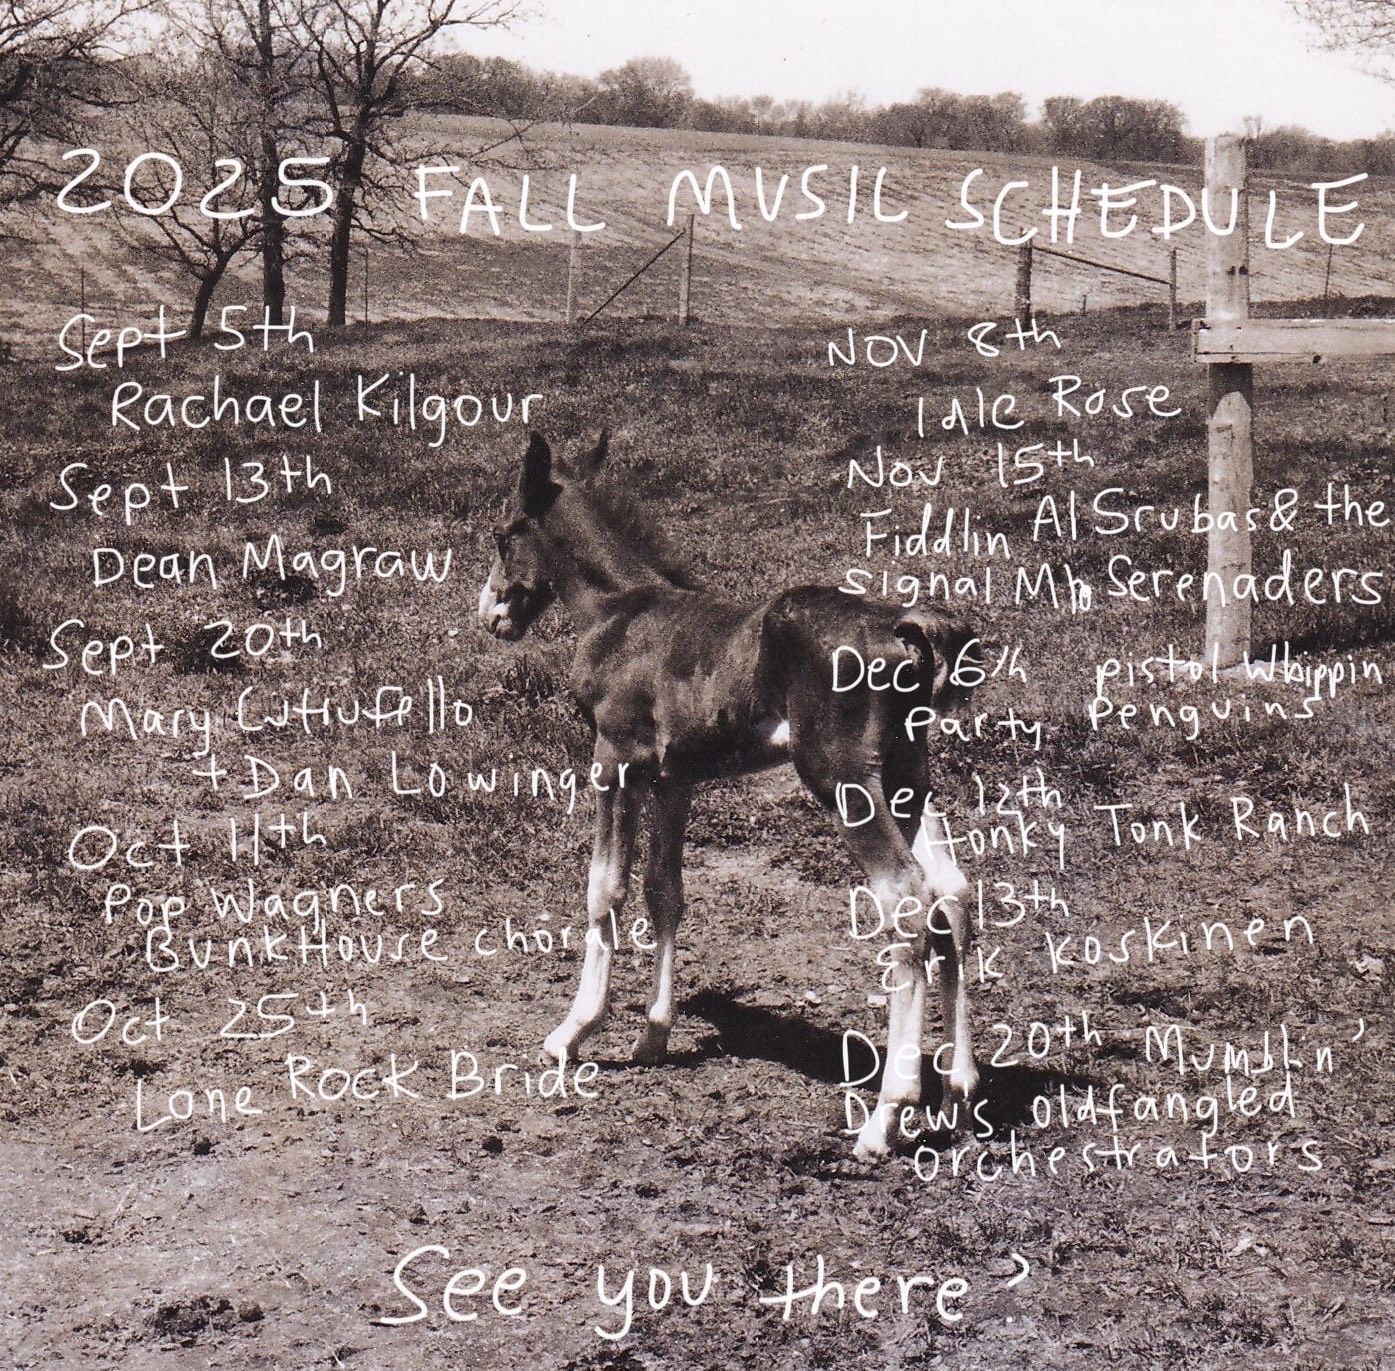 2025 FALL MUSIC SCHEDULE
Sept 5th
Rachael Kilgour
Sept 13th
Dean Magraw
Sept 20th
Mary Cutrufello
+ Dan Lowinger
Oct 11th
Pop Wagners
BunkHouse chorale
Oct 25th
Lone Rock Bride
NOV 8th
Idle Rose
Nov 15th
Fiddlin Al Srubas & the
Signal Serenaders
Dec 6th pistol Whippin
Party Penguins
Dec 12th
Honky Tonk Ranch
Dec 13th
Erik Koskinen
Dec 20th Mumblin'
Drews oldfangled
orchestrators
See you there